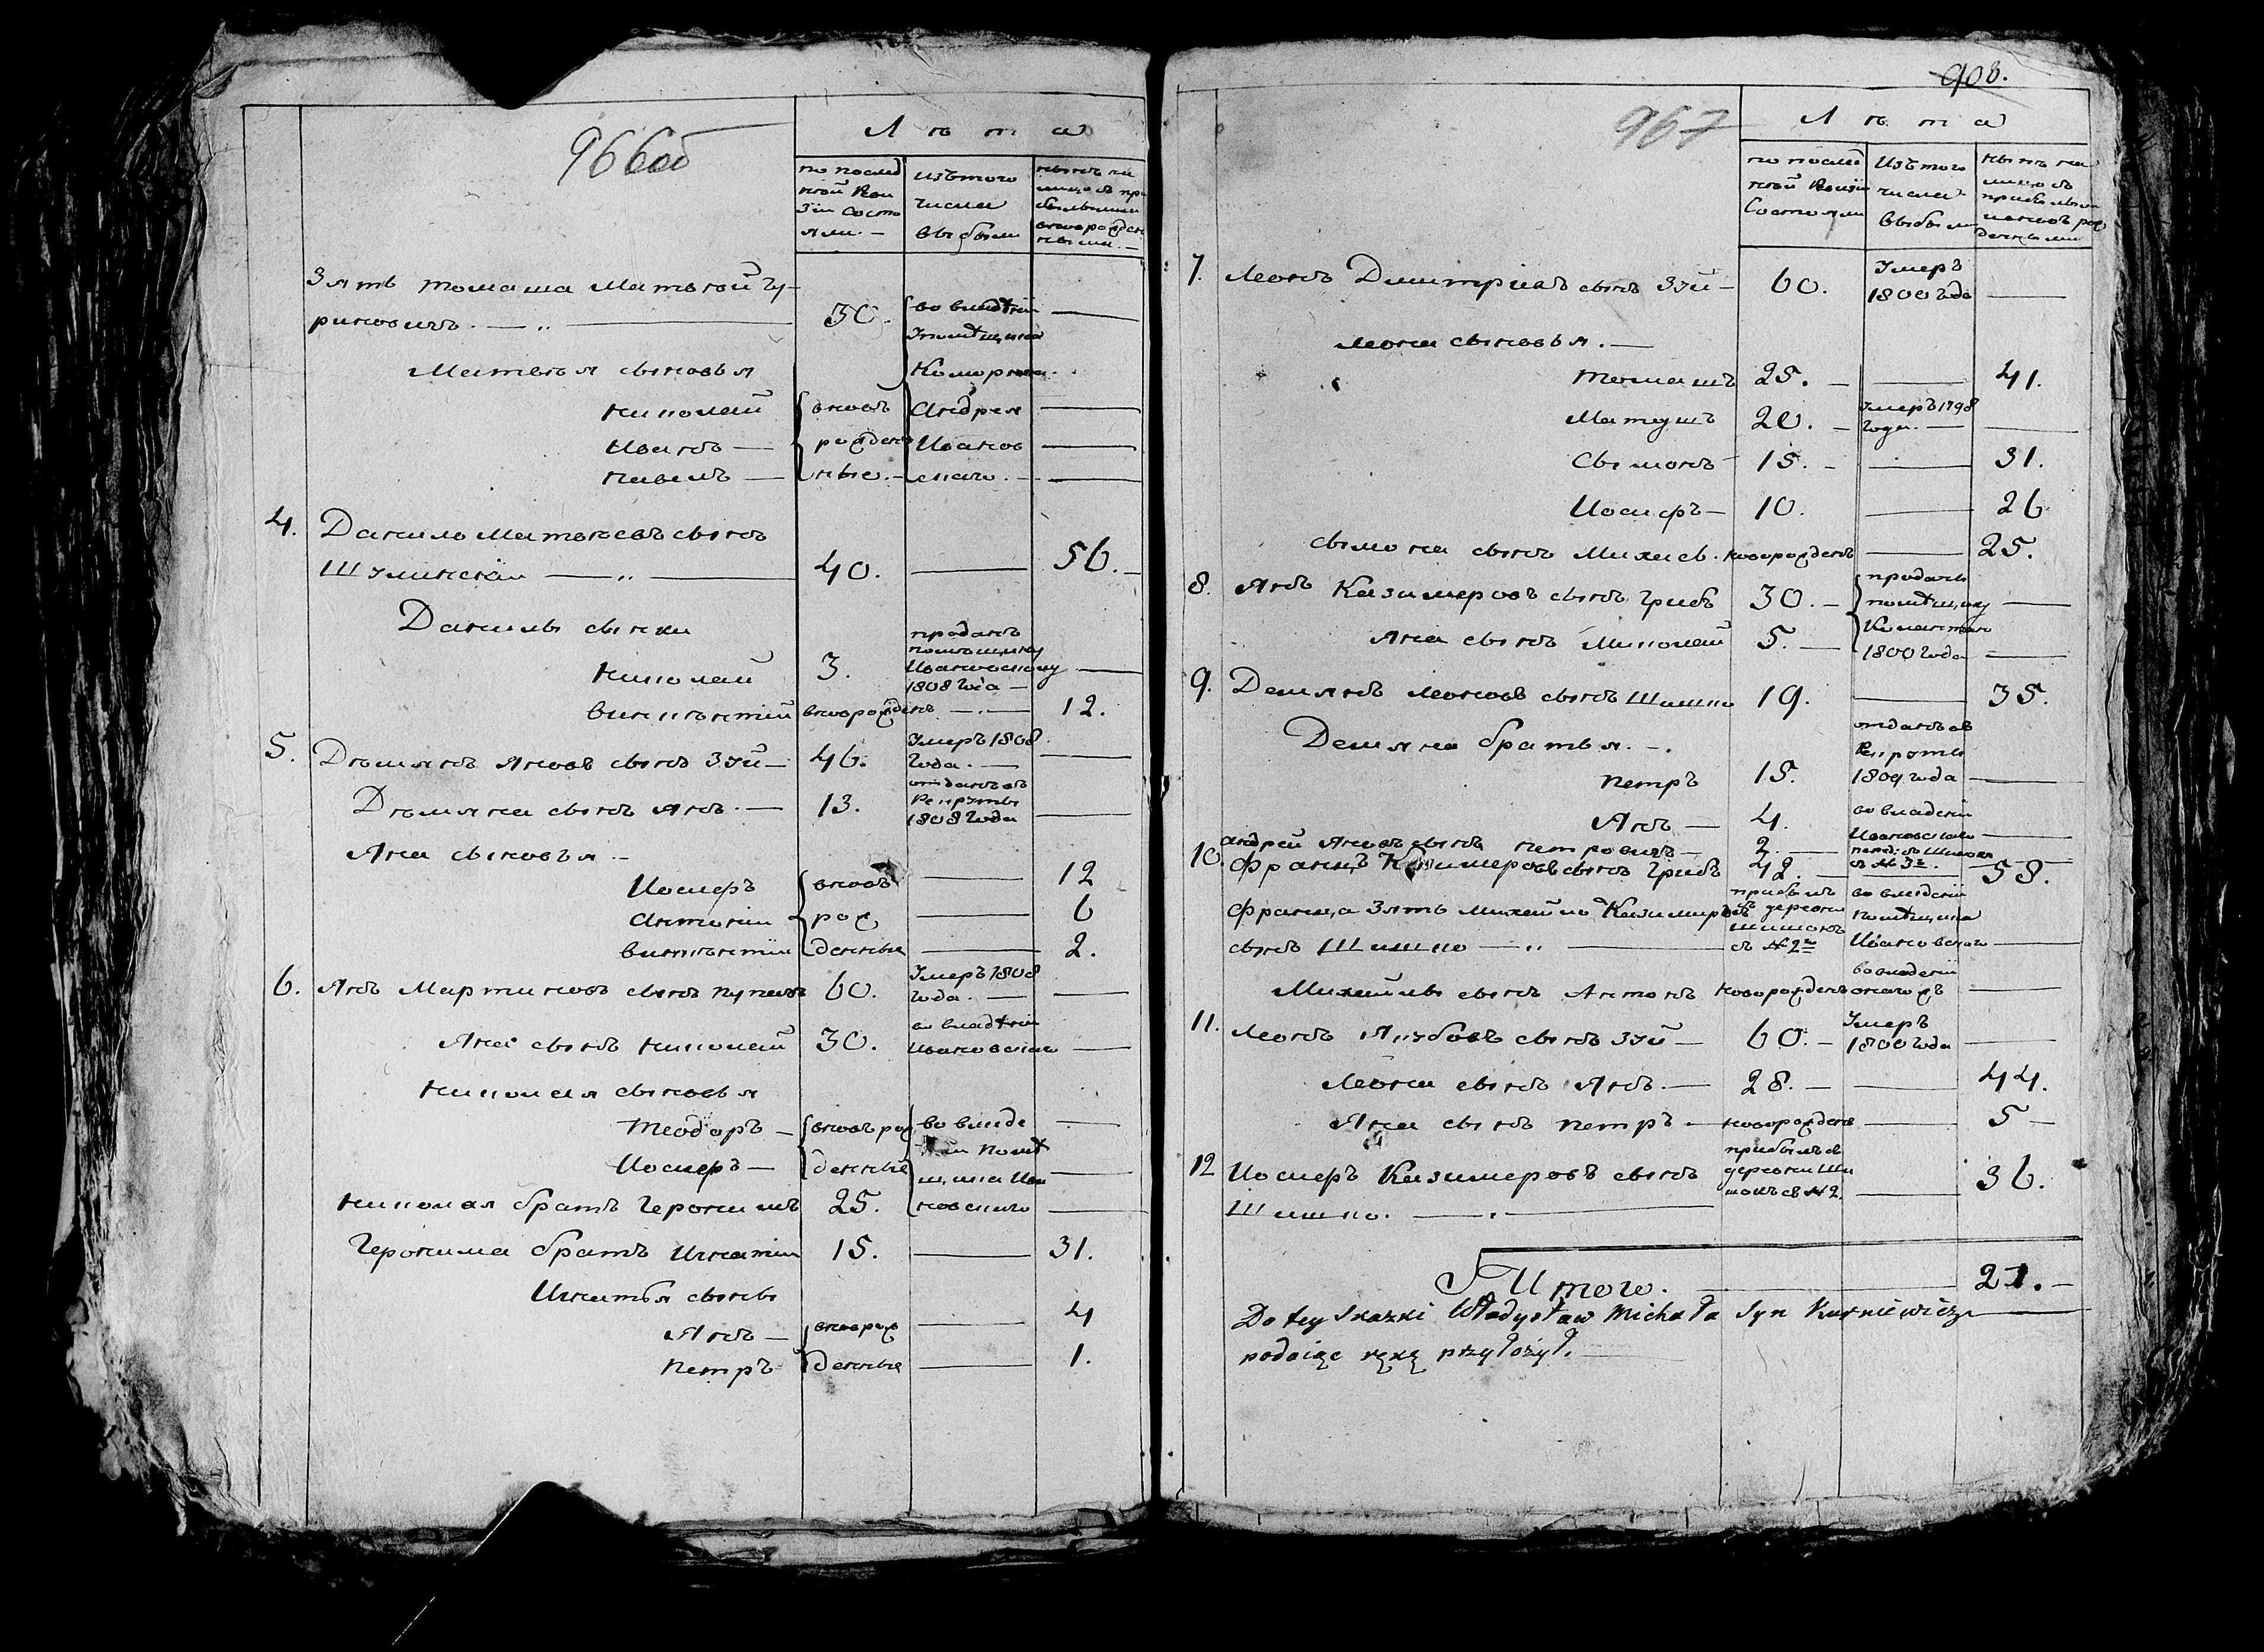 966об
Л ѣ т а
по послѣд
ней Реви
зіи Состо
яли. —
Изътого
числа
выбыли
нынѣ на
лицо съ при
былыми
вновьрожден
ными. —
Зять томаша Матвей
риновичъ. — „ —
30.
во владѣніи
Помѣщика
Матвея сыновья
Коморника
николай
вновь
Андрея
—
Иванъ —
рожден
Иванов
—
павелъ —
ные. —
скаго. —
—
4. Данило Матвеевъ сынъ
Шумински — „ —
40. — 56. —
Данилы сынки
николай 3.
проданъ
помѣщику
Ивановскому
1808 года —
—
викентій вновьрожденъ — . — 12.
5. Демянъ Яновъ сынъ Зуй — 46.
Умеръ 1808
Года. —
—
Демяна сынъ Янъ. — 13.
отданъ въ
Рекруты
1808 Года
—
Яна сыновья —
Иосифъ вновь — 12
Антоній рож — 6
викентій денные — 2.
6. Янъ Мартиновъ сынъ 60.
Умеръ 1808
года. —
—
Яна сынъ николай 30.
во владѣніи
Ивановскаго
—
николая сыновья
Теодоръ — вновь рож во владе —
Иосифъ — денные
ніи Помѣ
щика Ива
—
николая братъ Геронимъ 25. новскаго —
Геронима братъ Игнатій 15. — 31.
Игнатья сыны
Янъ — вноврож — 4
петръ денные — 1.
908.
967
Л ѣ т а
по послѣд
ней Ревизіи
Состояли
Изътого
числа
выбыли
нынѣ на
лицо съ
прибылыми
и новорож
денными
7. Леонъ Димитріевъ сынъ Зуй — 60.
Умеръ
1800 года
—
Леона сыновья. —
томашъ 25. — — 41.
Матушъ 20. —
Умеръ 1798
Года. —
—
Сымонъ 15. — — 31.
Иосифъ — 10. — 26
сымона сынъ Михаев. новорожденъ — 25.
8. Янъ Казимеровъ сынъ Грибъ 30. —
проданы
помѣщику
—
Яна сынъ Миколай 5. —
1800 Года —
9. Демянъ Леоновъ сынъ Шишко 19. — 35.
Демяна братья. —.
петръ 15.
отданъ въ
Рекруты
1809 года
—
Янъ — 4.
во владеніи
Ивановскаго
—
андрей Яновъ сынъ петровичъ — 2. —
10. Францъ Казимеровъ сынъ Грибъ 42. — 58.
Франца зять Михайло Казимиръ
сынъ Шишко — „ —
прибылъ
деревни
съ №2
во владеніи
Помѣщика
Ивановскаго —
Михайлы сынъ Антонъ новорожденъ
во владеніи
онагожъ
—
11. Леонъ Якубовъ сынъ Зуй — 60. —
Умеръ
1800 года
—
Леона сынъ Янъ. — 28. — — 44.
Яна сынъ петръ — новорожденъ — 5 —
12 Иосифъ Казимеровъ сынъ
Шишко. — . —
прибылъ съ
деревни Ши
съ №2.
— 36.
Итого. — 21. —
Do tey Skazki Władysław Michała Syn Kurniewicz —
podaiąc rękę przyłożył. —